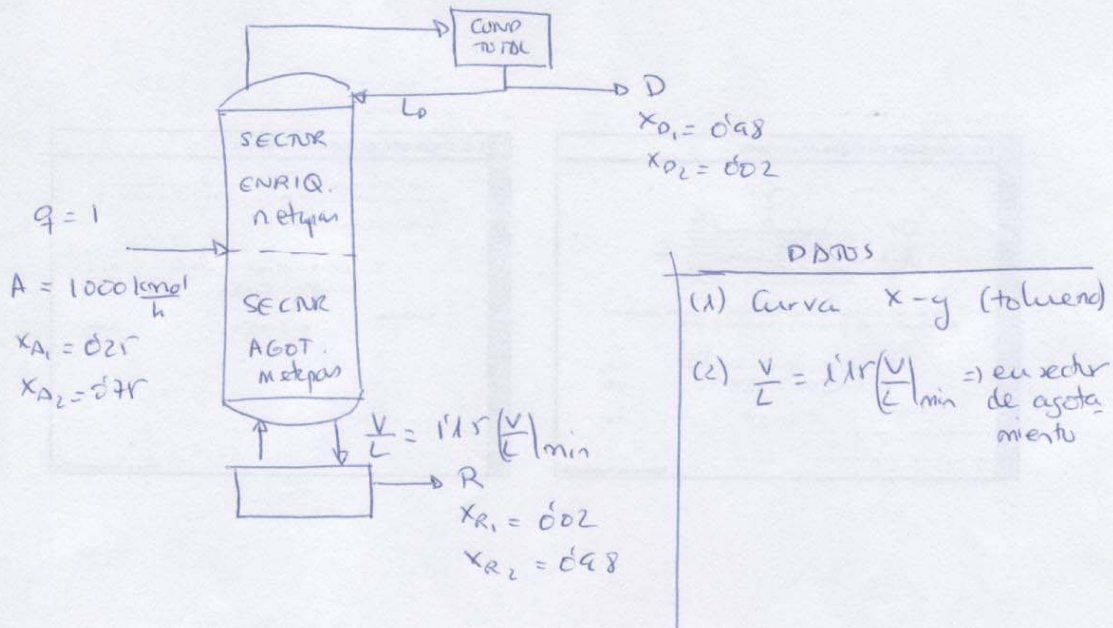 COND
TOTAL
L₀
D
x_D₁ = 0'98
x_D₂ = 0'02
SECTOR
ENRIQ.
n etapas
q = 1
A = 1000 kmol/h
x_A₁ = 0'25
x_A₂ = 0'75
SECTOR
AGOT.
m etapas
V/L = 1'15 (V/L)|min
R
x_R₁ = 0'02
x_R₂ = 0'98
DATOS
(1) Curva x-y (tolueno)
(2) V/L = 1'15 (V/L)|min => en sector
de agota
miento